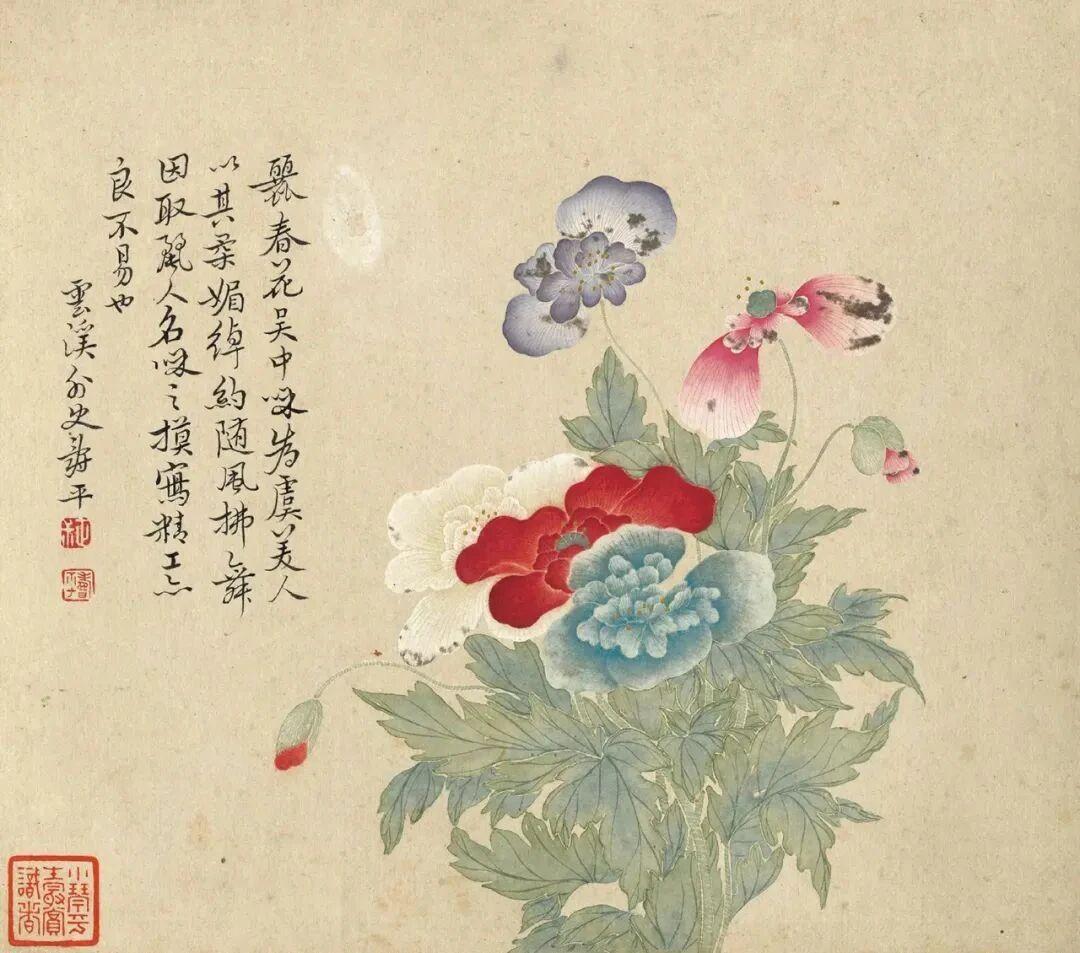 麗春花吴中呼為虞美人
以其柔媚綽約随風拂舞
因取麗人名呼之摸寫精工亦
良不易也
雲溪外史壽平